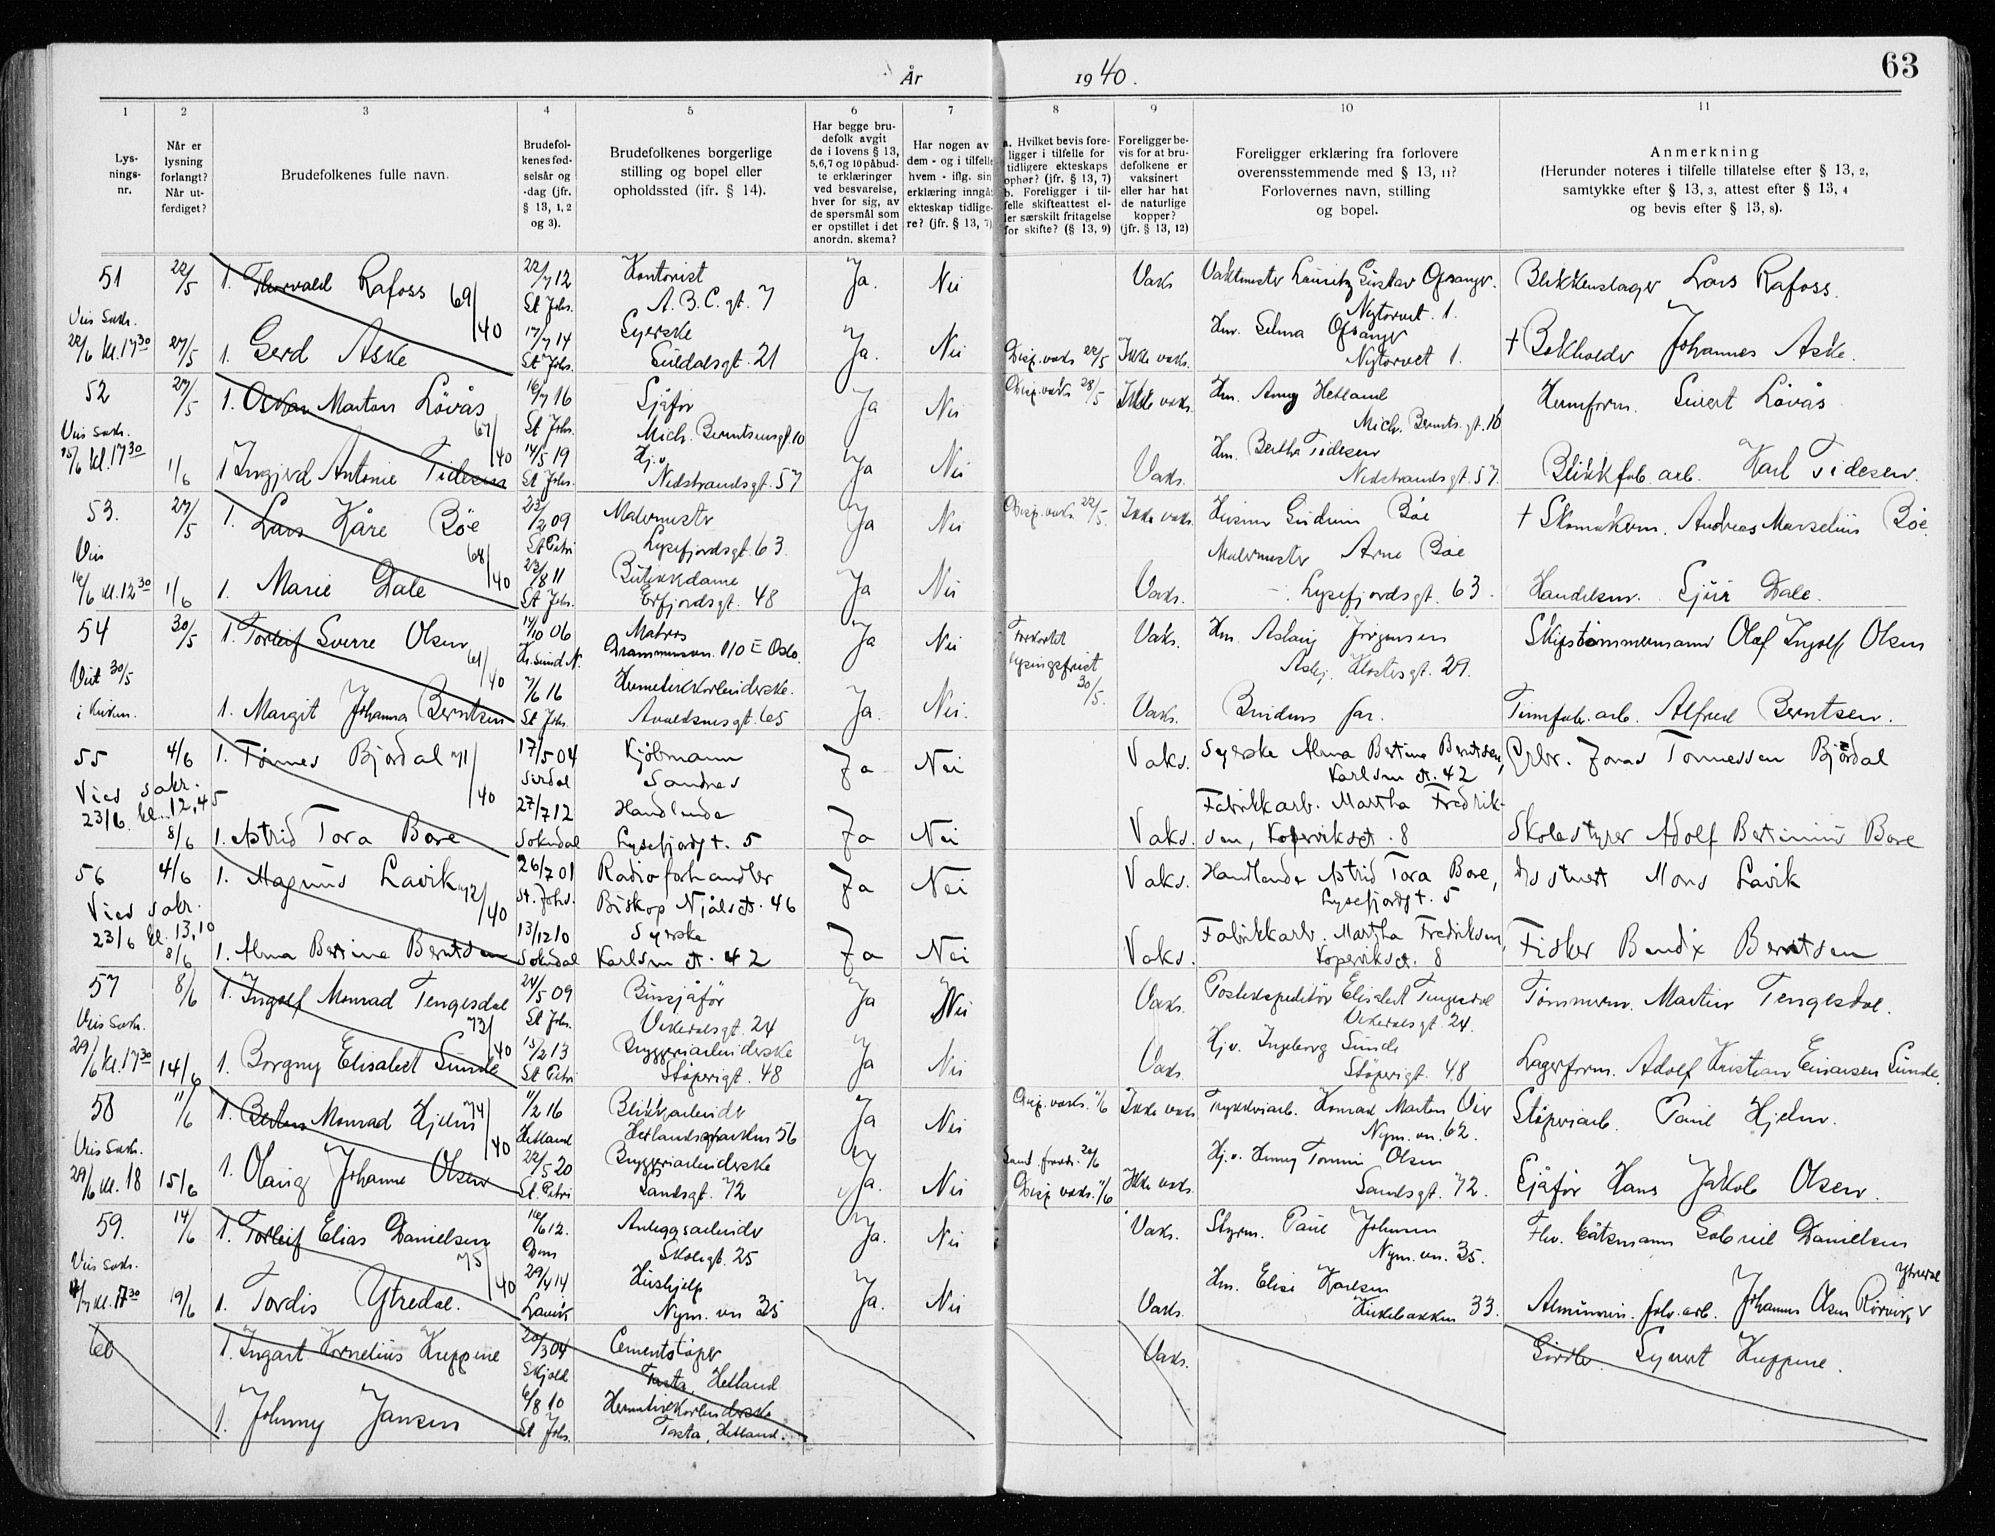 År 1940.
63
1 2 3 4 5 6 7 8 9 10 11
Lys-
nings-
nr.
Når er
lysning
forlangt?
Når ut-
ferdiget?
Brudefolkenes fulle navn.
Brudefol-
kenes fød-
selsår og
-dag (jfr.
§ 13, 1, 2
og 3).
Brudefolkenes borgerlige
stilling og bopel eller
opholdssted (jfr. § 14).
Har begge bru-
defolk avgit
de i lovens § 13,
5,6,7 og 10 påbud-
te erklæringer
ved besvarelse,
hver for sig, av
de spørsmål som
er opstillet i det
anordn. skema?
Har nogen av
dem - og i tilfelle
hvem - iflg. sin
erklæring inngå
ekteskap tidlige-
re? (jfr. § 13, 7)
a. Hvilket bevis fore-
ligger i tilfelle for
tidligere ekteskaps
ophør? (jfr. § 13, 7)
b. Foreligger i til-
felle skifteattest el-
ler særskilt fritagelse
for skifte? (§ 13, 9)
Foreligger be-
vis for at bru-
defolkene er
vaksinert
eller har hat
de naturlige
kopper?
(jfr. § 13, 12)
Foreligger erklæring fra forlovere
overensstemmende med § 13, 11?
Forlovernes navn, stilling
og bopel.
Anmerkning
(Herunder noteres i tilfelle tillatelse efter § 13, 2,
samtykke efter § 13, 3, attest efter § 13, 4
og bevis efter § 13, 8).
51 22/5 1. Thorvald Rafoss 69/40 22/7 12 Kontorist Ja. Nei Vaks Vaktmester Lauritz Gustav Ofsanger. Blikkenslager Lars Rafoss.
St Johs. A.B.C. gt. 7 Nytorvet 1.
Vies sakr.
22/6 kl. 17 30 27/5 1. Gerd Aske 17/7 14 Syerske Ja. Nei Disp. vaks 22/5 Ikke vaks. Hm. Selma Ofsanger † Bokholder Johannes Aske.
St Johs. Suldalsgt. 21 Nytorvet 1.
52 27/5 1. Oskar Marton Løvås 67/40 16/7 16 Sjåfør Ja Nei Disp. vaks 28/5 Ikke vaks. Hm. Anny Hetland Hermform. Sivert Løvås
St Johs. Mich. Berntsensgt. 10 Mich. Bernts. gt. 10
Vies sakr.
15/6 kl. 17 30 1/6 1 Ingjerd Antonie Tidesen 14/5 19 Hj.v. Ja Nei Vaks. Hm. Bertha Tidesen Blikkfab. arb. Karl Tidesen.
St Johs. Nedstrandsgt. 57 Nedstrandsgt. 57
53. 27/5 1. Lars Kåre Bøe 68/40 23/2 09 Malermester Ja Nei Disp. vaks. 22/5. Ikke vaks. Husmor Gudrun Bøe † Skomakerm. Andreas Marselius Bøe.
St Petri Lysefjordsgt. 63.
Vies
16/6 kl. 12 30 1/6 1. Marie Dale 23/8 11 Butikkdame Ja Nei Vaks. Malermester Arne Bøe Handelsm. Sjur Dale.
St Johs. Erfjordsgt. 48 Lysefjordsgt. 63.
54 30/5 1. Torleif Sverre Olsen 61/40 14/10 06 Matros Ja Nei Forkortet lysingsfrist 30/5. Vaks. Hm. Aslaug Jørgensen Skipstømmermann Olaf Ingolf Olsen
Kr. sund N. Oslo. Asbj. Klostersgt. 29.
Viet 30/5
i kirken. 1. Margit Johanna Berntsen 7/6 16 Hermetikkarbeiderske. Ja. Nei. Vaks. Brudens far. Tinnfab. arb. Alfred Berntsen.
St Johs. Avaldsnesgt. 65
55 4/6 1. Tønnes Bjørdal 71/40 17/5 04 Kjøbmann Ja Nei Vaks. Syerske Alma Bertine Berntsen, Gbr. Jonas Tønnessen Bjørdal
Sirdal Sandnes Karlsm. gt. 42
Vies sakr.
23/6. kl. 12,45 8/6 1. Astrid Tora Bore 27/7 12 Handlende Ja Nei Vaks. Fabrikkarb. Martha Fredrik-
sen, Kopervikgt. 8 Skolestyrer Adolf Bertinius Bore
Sokndal Lysefjordgt. 5
56 4/6 1. Magnus Lavik 72/40 26/7 01 Radioforhandler Ja Nei Vaks. Handlende Astrid Tora Bore, Mons Lavik
St. Johs. Biskop Njålsgt. 46 Lysefjordgt. 5
Vies sakr.
23/6 kl. 13,10 8/6 1. Alma Bertine Berntsen 13/12 10 Syerske Ja Nei Vaks. Fabrikkarb. Martha Fredriksen, Fisker Bendix Berntsen
Sokndal Karlsm. gt. 42 Kopervikgt. 8
57 8/6 1. Ingolf Monrad Tengesdal 73/40 24/5 09 Bussjåfør Ja Nei Vaks. Postekspeditør Elisabet Tengesdal Tømmerm. Martin Tengesdal.
St Johs. Vikedalsgt. 24 Vikedalsgt. 24.
Vies sakr.
29/6 kl. 17 30 14/6 1. Borgny Elisabet Sunde 15/2 13 Bryggeriarbeiderske Ja Nei Vaks. Hj.v. Ingeborg Sunde Lagerform. Adolf Kristian Einarsen Sunde.
St Petri Støperigt. 48 Støperigt. 48
58 11/6 1. Monrad Hjelm 74/40 11/2 16 Blikkarbeider Ja Nei Disp. vaks. 11/6 Ikke vaks. Trykkeriarb. Konrad Marton Vix Støperiarb. Paul Hjelm.
Hetland Hetlandsparken 56 Nym. vn. 62.
Vies sakr.
29/6 kl. 18 15/6 1. Olaug Johanne Olsen 22/5 20 Bryggeriarbeiderske Ja. Nei Disp. vaks. 11/6 Ikke vaks. Hj.v. Henny Tomine Olsen Sjåfør Hans Jakob Olsen.
St. Petri Sandsgt. 72 Sandsgt. 72.
59. 14/6 1. Torleif Elias Danielsen 75/40 16/6 12. Anleggsarbeider Ja. Nei Vaks. Styrm. Paul Johnsen Fhv. båtsmann Gabriel Danielsen
Dom Skolegt. 25 Nym. vn. 35.
Vies sakr.
kl. 17 30 19/6 1. Tordis Ytredal. 29/4 14 Hushjelp Ja. Nei Vaks. Hm. Elise Karlsen Aluminium. fab. arb. Johannes Olsen Rørvik, Ytredal
Lavik Nym. vn 35 Kirkebakken 33.
60 1. Ingart Kornelius Kuppine 20/3 04 Cementstøper Vaks. Gårdbr. Syvert Kuppine.
Skjold Tasta, Hetland
1. Johnny Jansen 6/8 10 Hermetikkarbeiderske
St Johs. Tasta, Hetland.